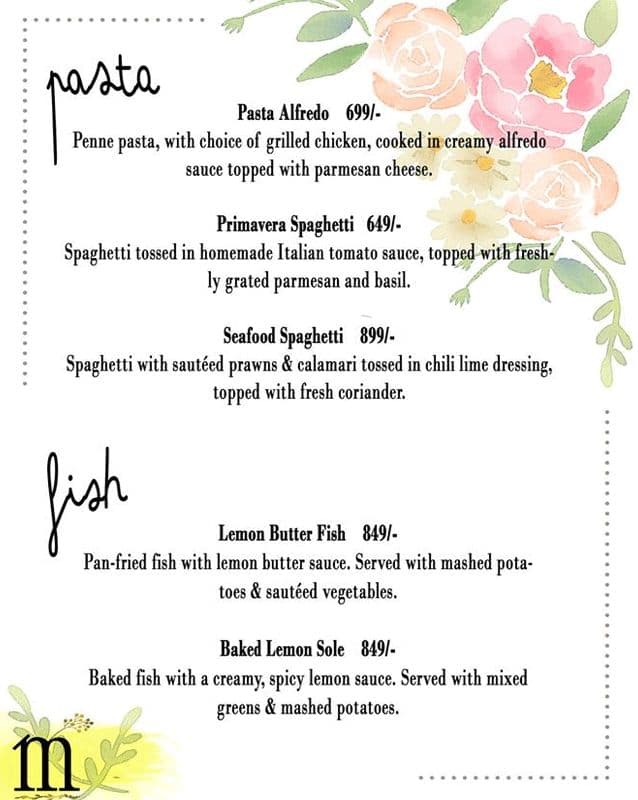 pasta
Pasta Alfredo 699/-
Penne pasta, with choice of grilled chicken, cooked in creamy alfredo
sauce topped with parmesan cheese.
Primavera Spaghetti 649/-
Spaghetti tossed in homemade Italian tomato sauce, topped with fresh-
ly grated parmesan and basil.
Seafood Spaghetti 899/-
Spaghetti with sautéed prawns & calamari tossed in chili lime dressing,
topped with fresh coriander.
fish
Lemon Butter Fish 849/-
Pan-fried fish with lemon butter sauce. Served with mashed pota-
toes & sautéed vegetables.
Baked Lemon Sole 849/-
Baked fish with a creamy, spicy lemon sauce. Served with mixed
greens & mashed potatoes.
m